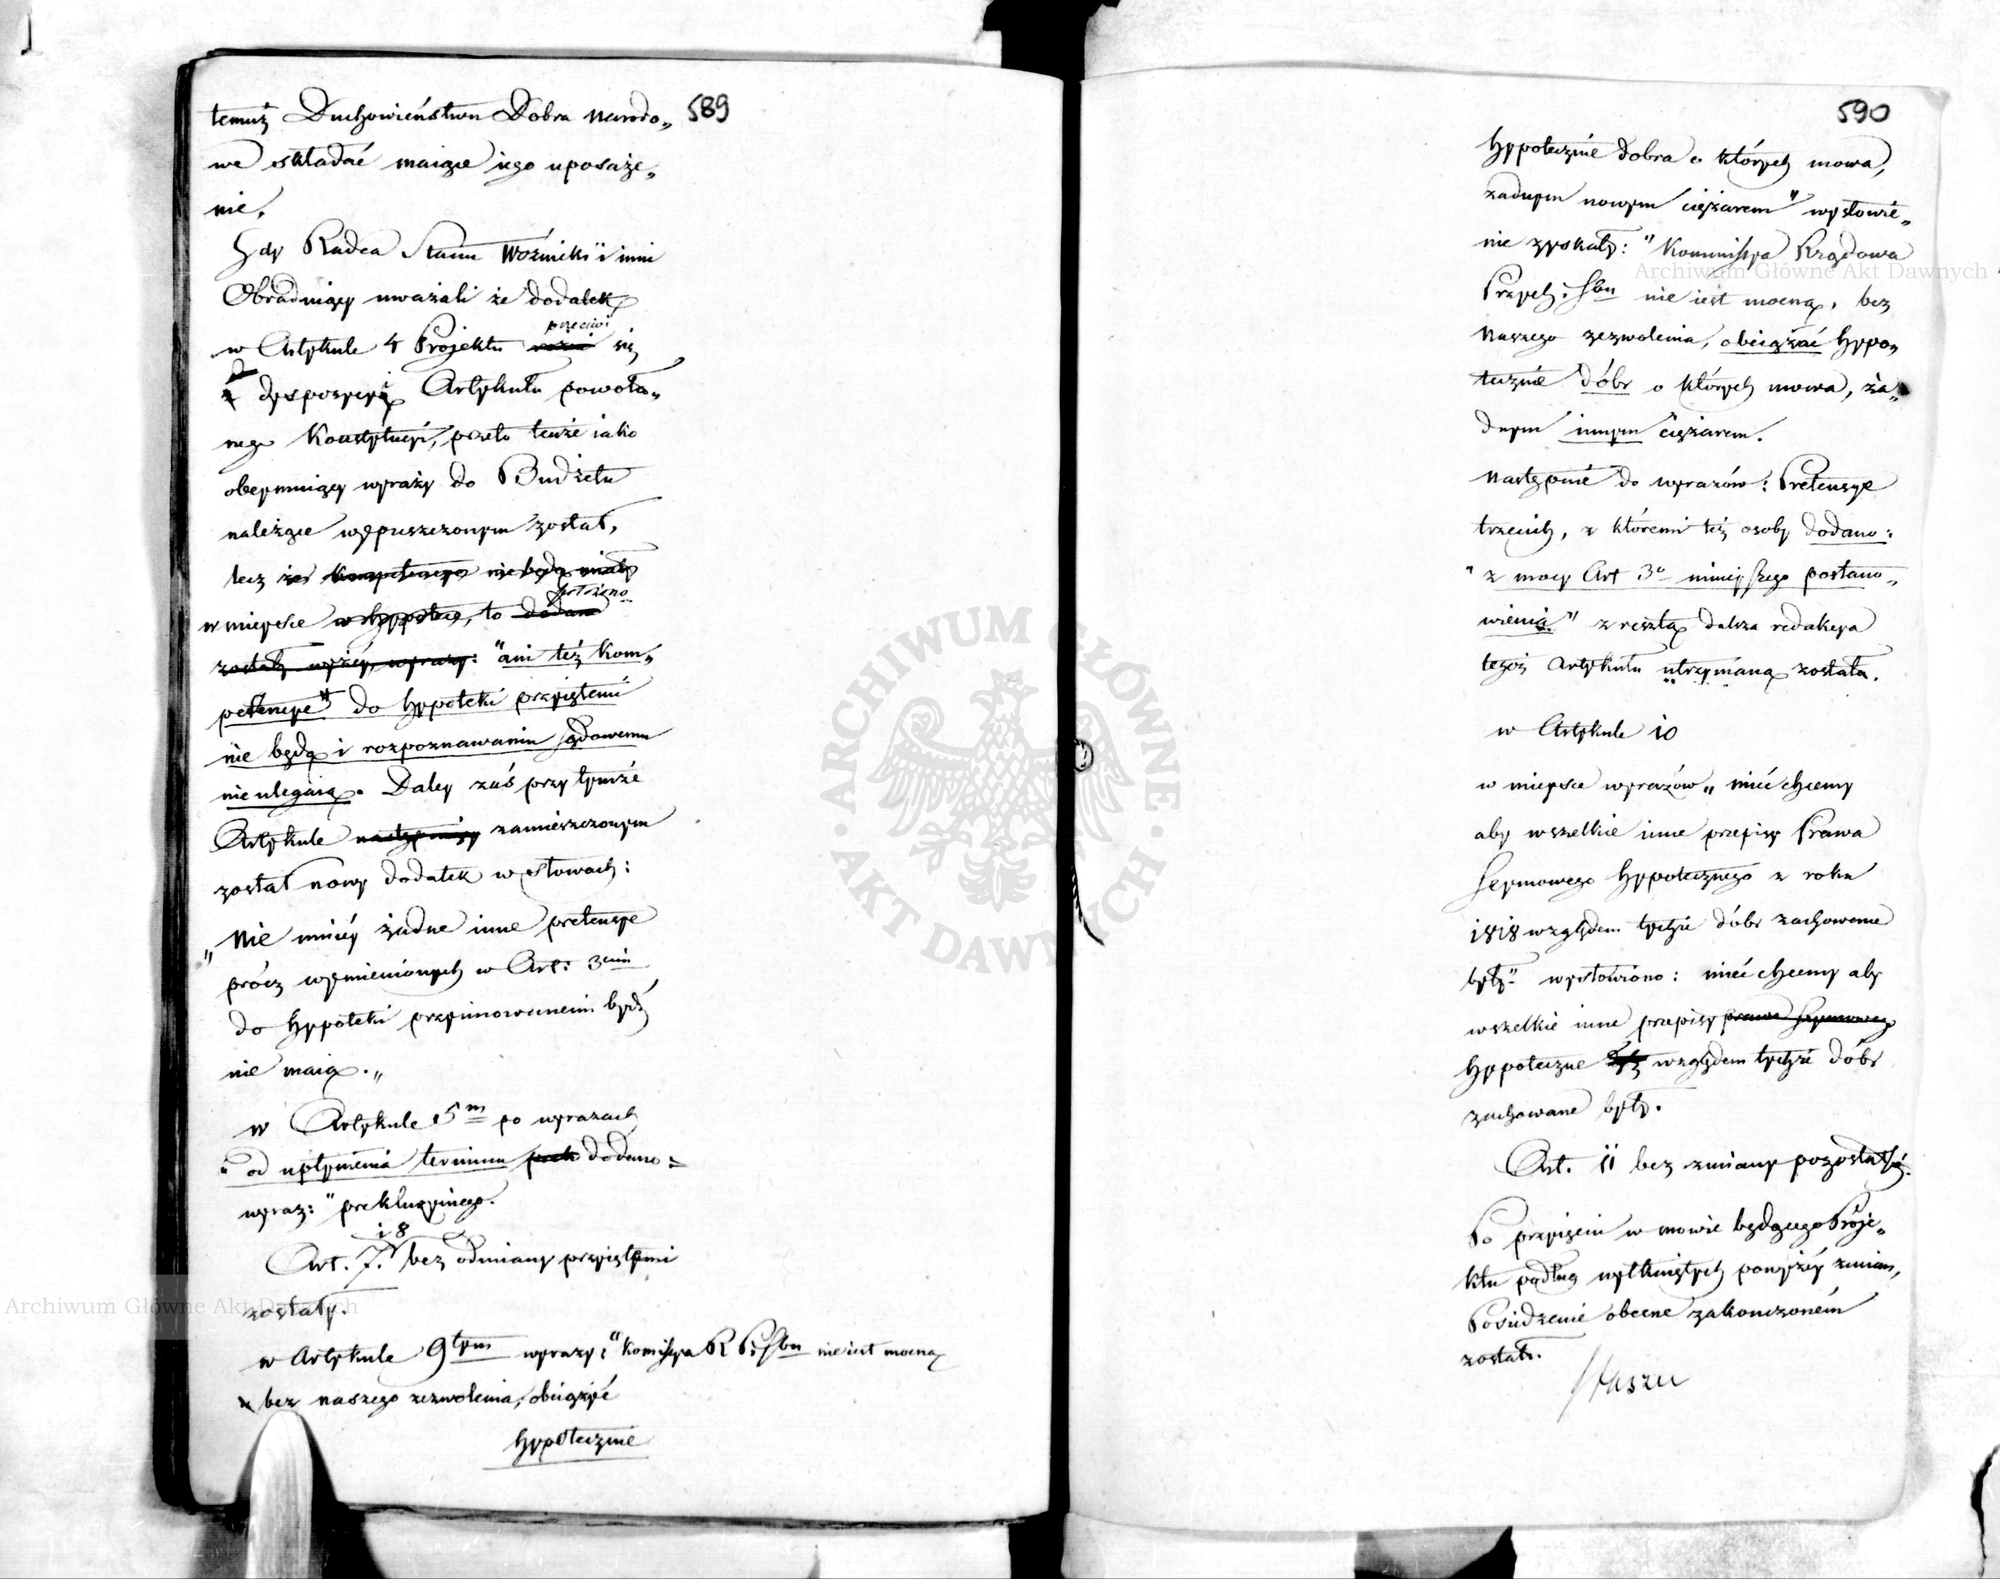 589
temuż Duchowieństwu Dobra narodo„
we składać maiące iego uposaże„
nie.
Gdy Radca Stanu Woźnicki i inni
Obraduiący uważali że dodatek
w Artykule 4 Projektu przeciwi się
dyspozycyi Artykułu powoła„
nego Konstytucyi, przeto tenże iako
obeymuiący wyrazy do Budżetu
należące wypuszczonym został,
lecz że kompetencye nie będą miały
w mieysce w hypotece, to położono
zostały wyżéy, wyrazy: "ani też kom„
petencye" do hypoteki przyiętemi
nie będą i rozpoznawaniu sądowemu
nie ulegaią. Daley zaś przy tymże
Artykule następuiący zamieszczonym
został nowy dodatek w słowach:
„Nie mniéy żadne inne pretensye
prócz wymienionych w Art: 3cim
do hypoteki przyimowanemi bydź
nie maią.„
w Artykule 5m po wyrazach
"od upłynienia terminu dodano=
wyraz: "prekluzyinego.
i 8
Art. 7. bez odmiany przyiętemi
zostały.
w Artykule 9tym wyrazy: "Komissya R P. Sbu nie iest mocną
bez naszego zezwolenia, obciążyć
hypotecznie
590
hypotecznie dobra o których mowa,
żadnym nowym ciężarem" wysłowie„
nie zyskały: "Kommissya Rządowa
Przych: Sbu nie iest mocną, bez
Naszego zezwolenia, obciążać hypo„
tecznie dóbr o których mowa, ża„
dnym innym ciężarem.
Następnie do wyrazów: Pretensye
trzecich, z któremi też osoby dodano:
"z mocy Art 3o ninieyszego postano„
wienia" z resztą dalsza redakcya
tegoż Artykułu utrzymaną została.
w Artykule 10
w mieysce wyrazów „mieć chcemy
aby wszelkie inne przepisy Prawa
Seymowego hypotecznego z roku
1818 względem tychże dóbr zachowane
były" wysłowiono: mieć chcemy aby
wszelkie inne przepisy prawa Seymowego
hypoteczne względem tychże dóbr
zachowane były.
Art. 11 bez zmiany pozostał się.
Po przyięciu w mowie będącego Proje„
ktu podług wytkniętych powyżéy zmian,
Posiedzenie obecne zakończoném
zostało.
Staszic
Archiwum Główne Akt Dawnych
Archiwum Główne Akt Dawnych
ARCHIWUM GŁÓWNE
AKT DAWNYCH